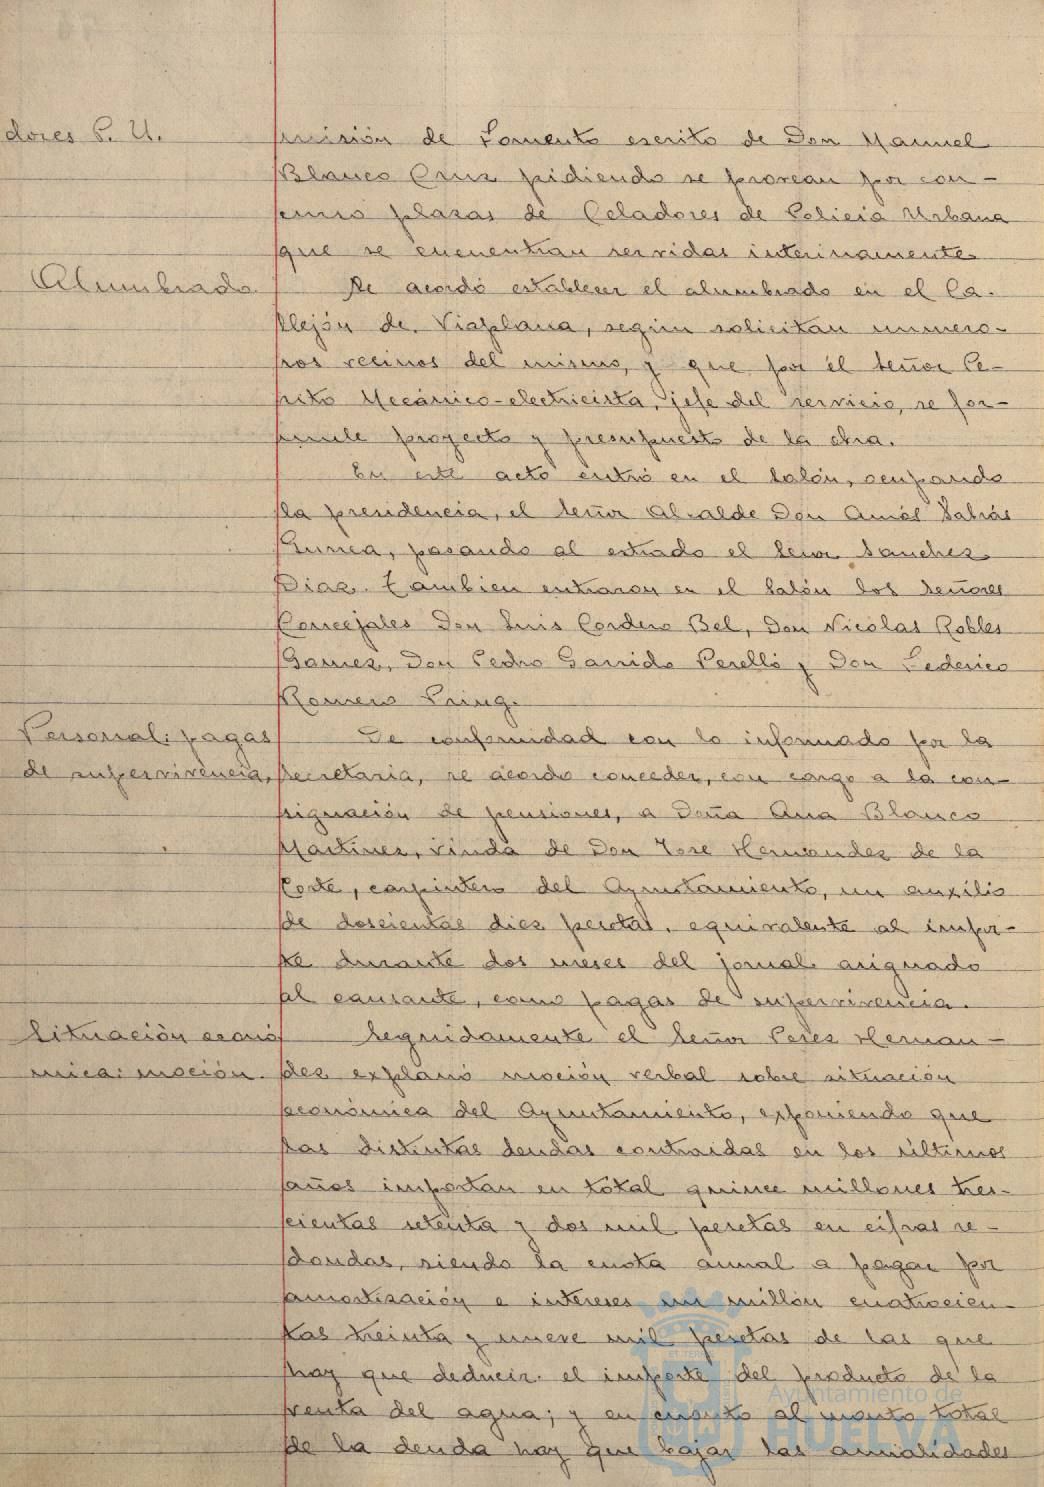 dores P. U.
misión de Fomento escrito de Don Manuel
Blanco Cruz pidiendo se provean por con-
curso plazas de Celadores de Policia Urbana
que se encuentran servidas interinamente.
Alumbrado.
Se acordó establecer el alumbrado en el Ca-
llejón de Viaplana, según solicitan numero-
sos vecinos del mismo, y que por el señor Pe-
rito Mecánico-electricista, jefe del servicio, se for-
mule proyecto y presupuesto de la obra.
En este acto entró en el salón, ocupando
la presidencia, el señor Alcalde Don Amós Sabrás
Gurrea, pasando al estrado el señor Sanchez
Diaz. Tambien entraron en el salón los señores
Concejales Don Luis Cordero Bel, Don Nicolas Robles
Gomez, Don Pedro Garrido Perelló y Don Federico
Romero Pring.
Personal: pagas
de supervivencia.
De conformidad con lo informado por la
secretaria, se acordó conceder, con cargo a la con-
signación de pensiones, a Doña Ana Blanco
Martinez, viuda de Don Jose Hernandez de la
Corte, carpintero del Ayuntamiento, un auxilio
de doscientas diez pesetas, equivalente al impor-
te durante dos meses del jornal asignado
al causante, como pagas de supervivencia.
Situación econó
mica: moción.
Seguidamente el señor Perez Hernan-
dez explanó moción verbal sobre situación
económica del Ayuntamiento, exponiendo que
las distintas deudas contraidas en los últimos
años importan en total quince millones tres-
cientas setenta y dos mil pesetas en cifras re-
dondas, siendo la cuota anual a pagar por
amortización e intereses un millón cuatrocien-
tas treinta y nueve mil pesetas de las que
hay que deducir el importe del producto de la
venta del agua; y en cuanto al monto total
de la deuda hay que bajar las anualidades
Ayuntamiento de
HUELVA